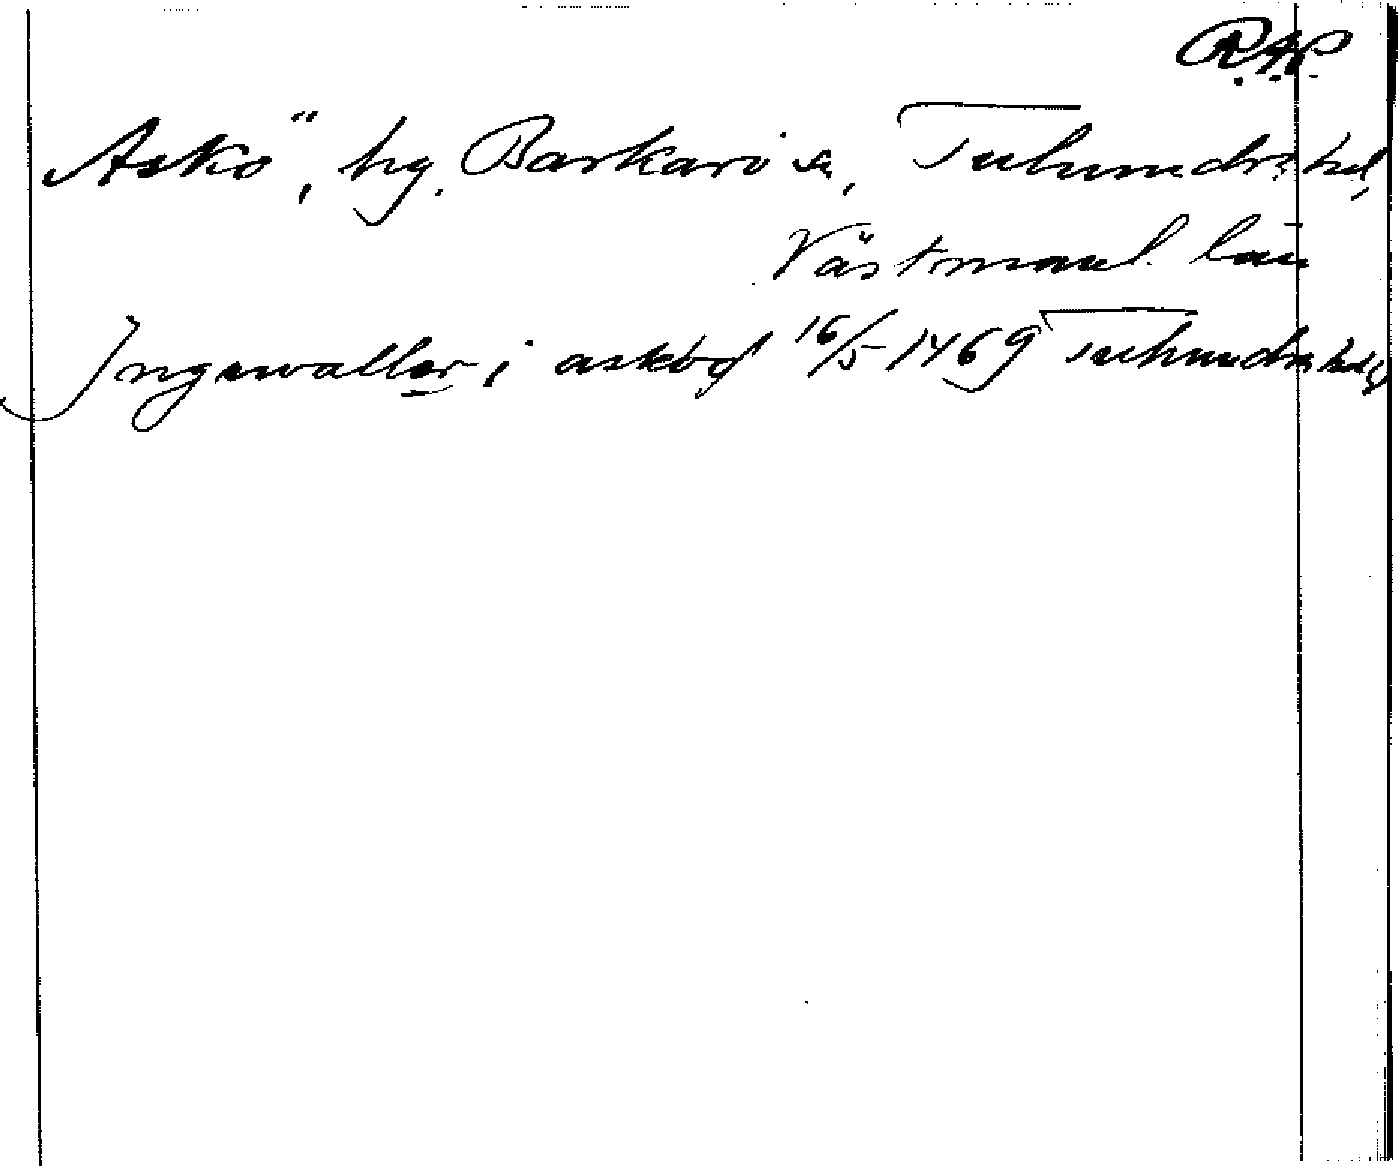 R.A.P.
Askö, by, Barkarö sn, Tuhundra hd,
Västmanl. län
Ingewaller i asköö 16/5 1469 Tuhundra hd